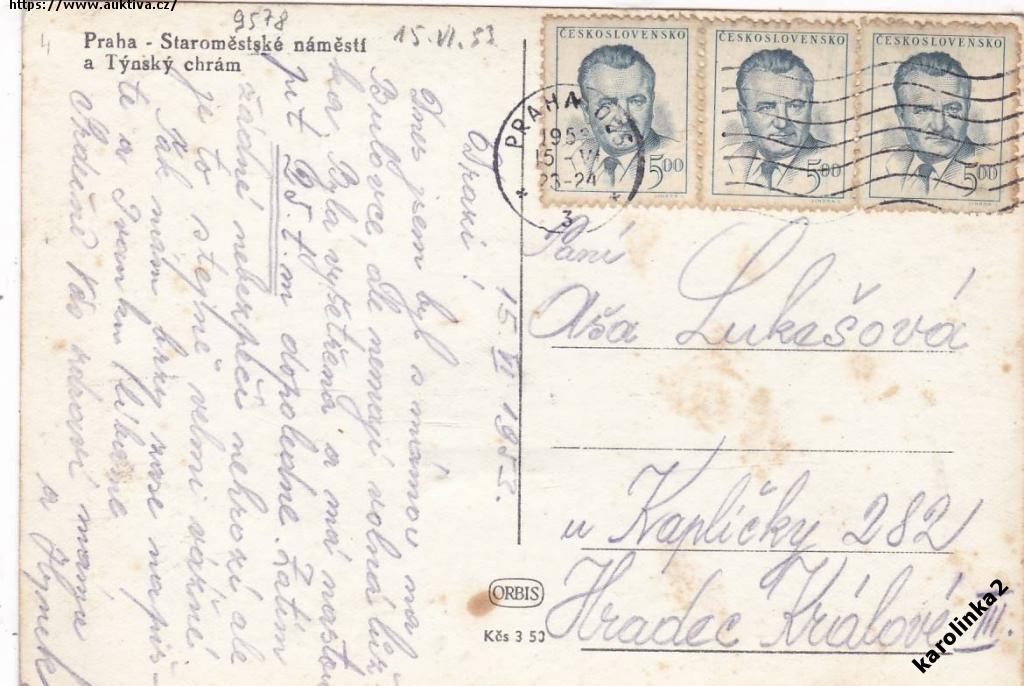 https://www.auktiva.cz/
9578
15.VI.53
4
Praha - Staroměstské náměstí
a Týnský chrám
ČESKOSLOVENSKO
5,00
ČESKOSLOVENSKO
5,00
ČESKOSLOVENSKO
5,00
PRAHA 025
1953
15. VI
23-24
3
15 VI 1953.
Drazí!
Dnes jsem byl s mámou na
Bulovce ale nemají volná lůž-
ka. Byla vyšetřena a má nastou-
pit 25.t.m dopoledne. Zatím
žádné nebezpečí nehrozí ale
je to stejně velmi vážné.
Pak mám brzy zase napíš-
te a Ivanku líbáme
Srdečně Vás zdraví máma
a Hynek
Paní
Áša Lukešová
u Kapličky 282
Hradec Králové III.
ORBIS
Kčs 3 53
karolinka2